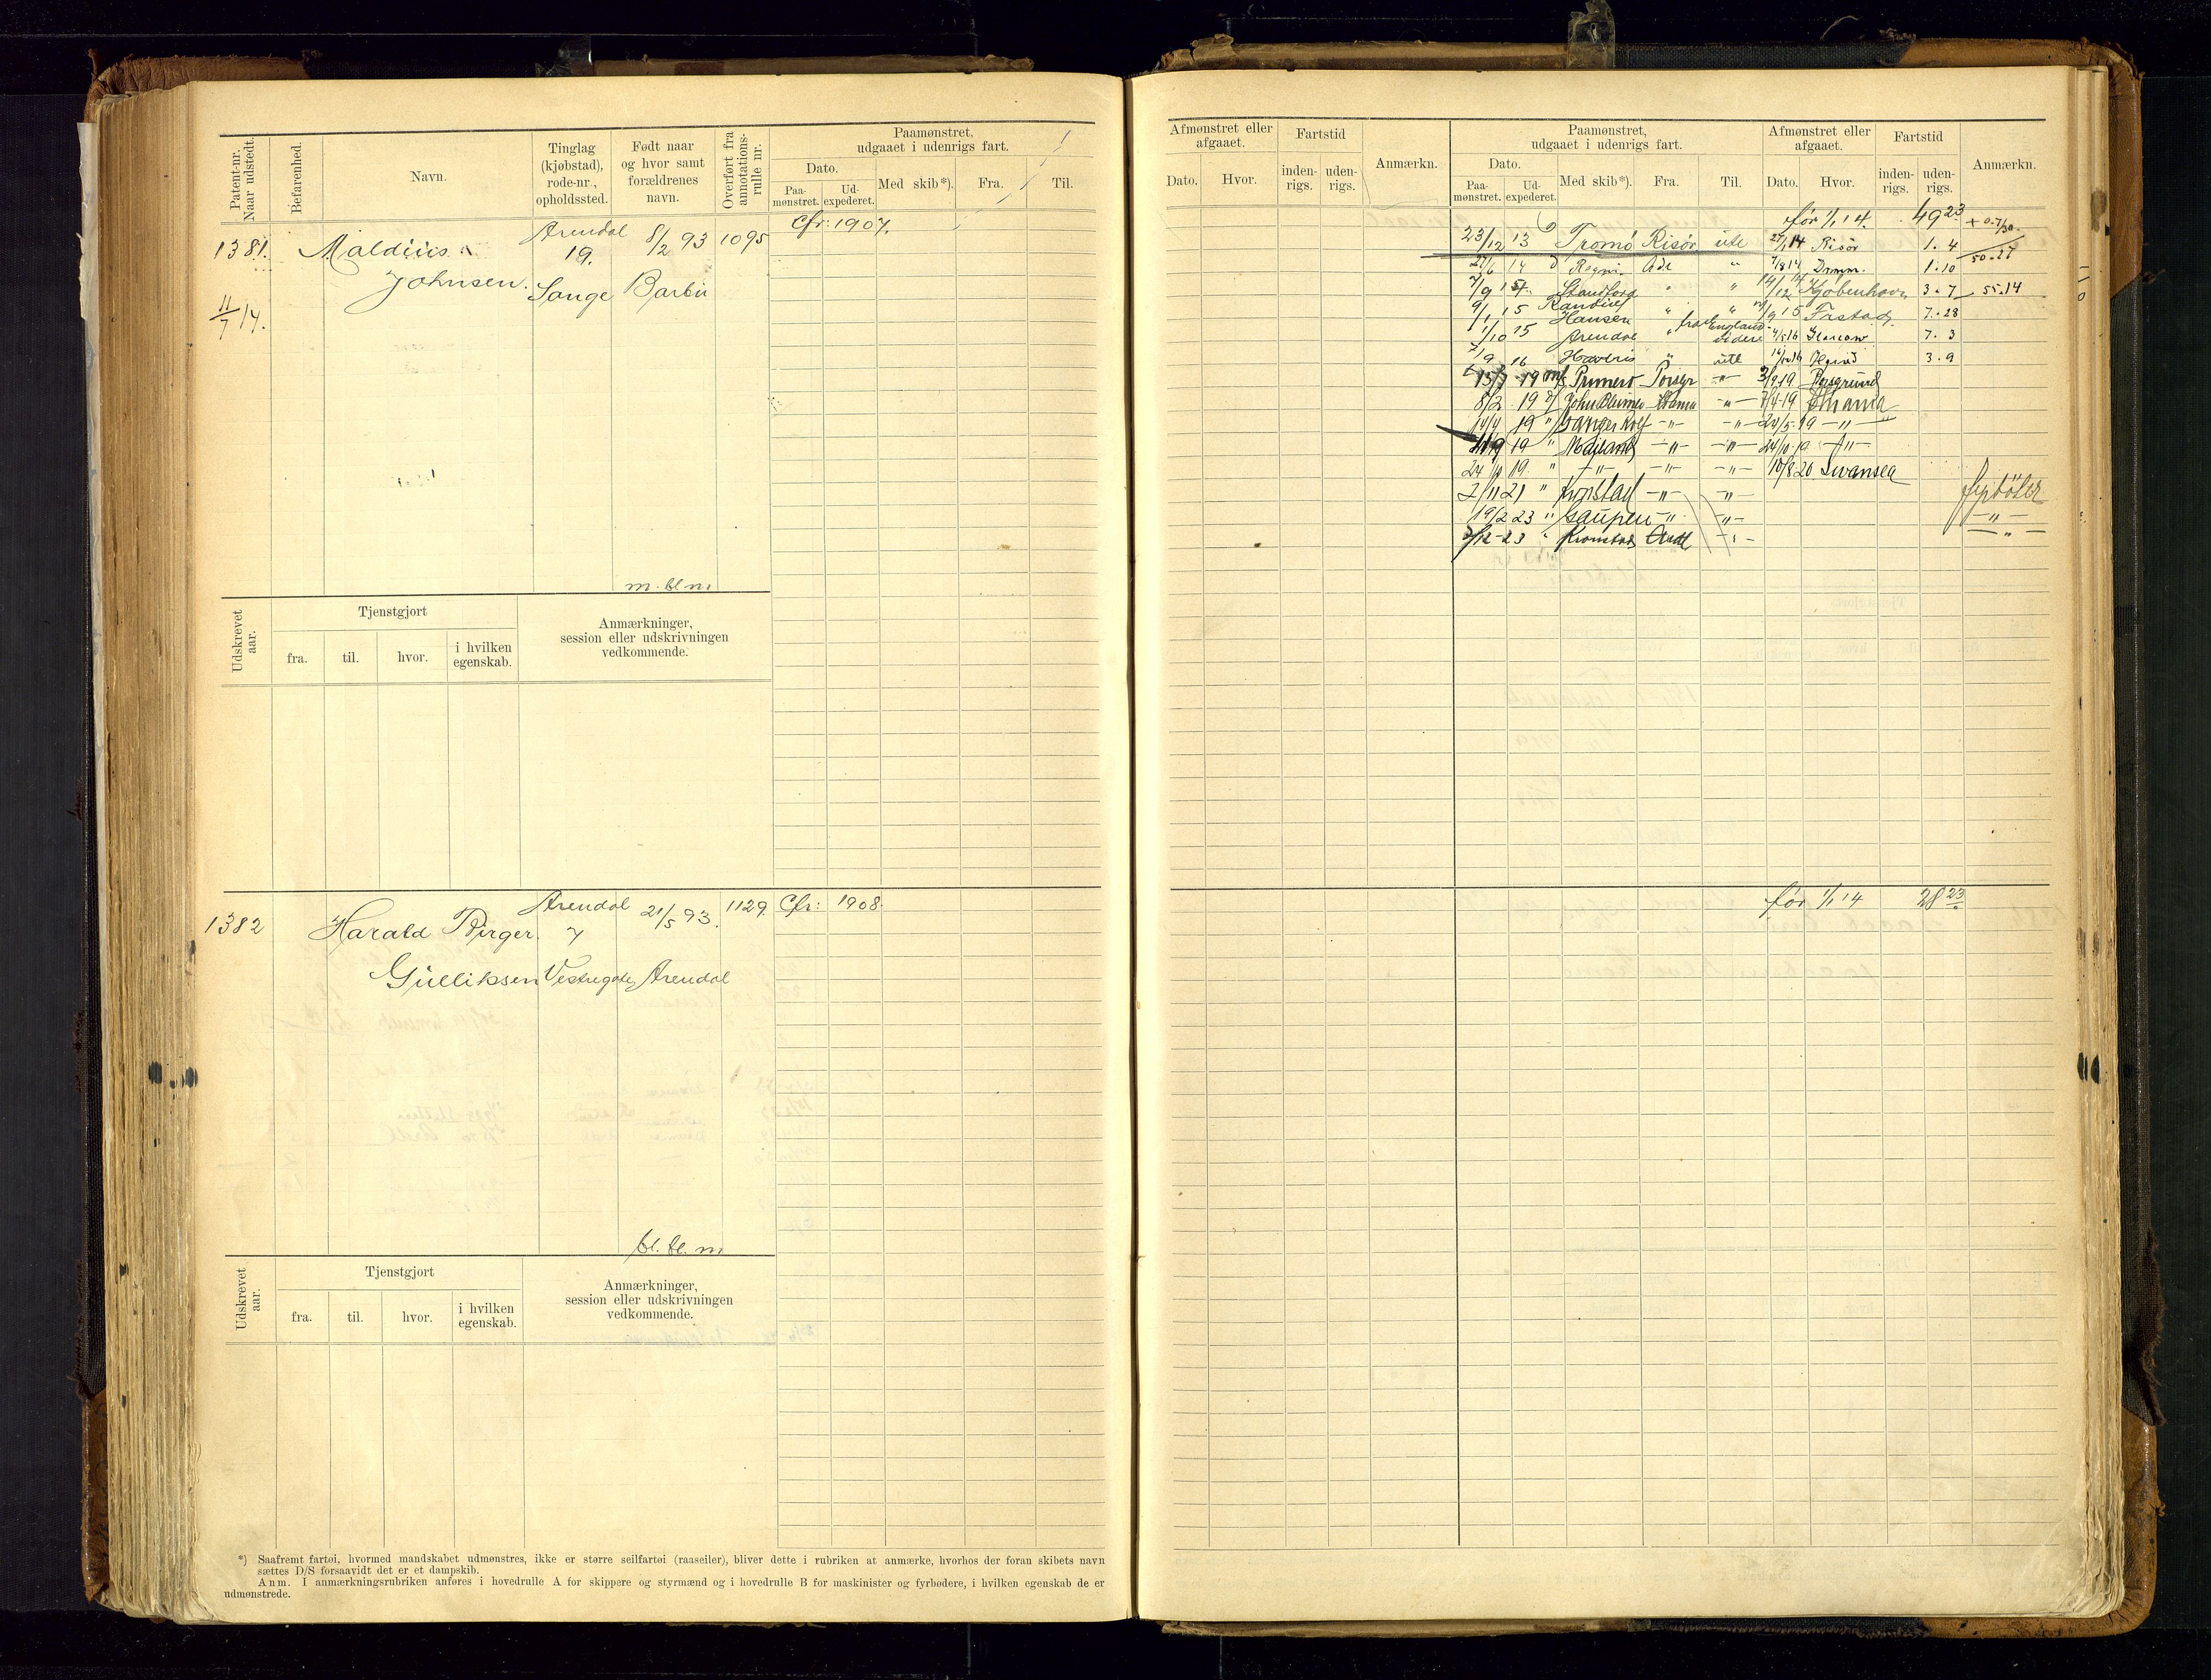 Patent-nr. Naar udstedt.
Befarenhed.
Navn.
Tinglag (kjøbstad), rode-nr., opholdssted.
Født naar og hvor samt forældrenes navn.
Overført fra annotations-rulle nr.
Paamønstret, udgaaet i udenrigs fart.
Dato.
Paa-mønstret. Ud-expederet.
Med skib*).
Fra.
Til.
1381. Maldius Arendal 8/2 93 1095 Cfr: 1907.
Johnsen. 19.
Songe Barbu
11/7 14.
m. bl m.
Udskrevet aar.
Tjenstgjort
fra. til. hvor. i hvilken egenskab.
Anmærkninger, session eller udskrivningen vedkommende.
1382 Harald Birger. Arendal 21/5 93. 1129. Cfr: 1908.
7
Gulliksen Vestregate Arendal
bl. bl. m
Udskrevet aar.
Tjenstgjort
fra. til. hvor. i hvilken egenskab.
Anmærkninger, session eller udskrivningen vedkommende.
*) Saafremt fartøi, hvormed mandskabet udmønstres, ikke er større seilfartøi (raaseiler), bliver dette i rubriken at anmærke, hvorhos der foran skibets navn
sættes D/S forsaavidt det er et dampskib.
Anm. I anmærkningsrubriken anføres i hovedrulle A for skippere og styrmænd og i hovedrulle B for maskinister og fyrbødere, i hvilken egenskab de er
udmønstrede.
Afmønstret eller afgaaet.
Dato. Hvor.
Fartstid
inden-rigs. uden-rigs.
Anmærkn.
Paamønstret, udgaaet i udenrigs fart.
Dato.
Paa-mønstret. Ud-expederet.
Med skib*). Fra. Til.
Afmønstret eller afgaaet.
Dato. Hvor.
Fartstid
inden-rigs. uden-rigs.
Anmærkn.
før 1/1 14. 49 23
23/12 13 Tromö Risör ute 27/1 14 Risör 1. 4
27/6 14 Ragni Adl " 7/8 14 Dramm. 1. 10 50-27
Standford " " 14/12 14 Kjøbenhavn 3. 7 55.14
9/1 15 Hansen " " 9 15 7. 28
1/10 15 Arendal " fra England videre 7. 3
9 16 " ute 3. 9
19 Primero Porsgr -"- 3/9 19 Porsgrund
8/2 19 -"-
19 " -"- -"- 24/5 19 -"-
19 " -"- -"- 24/10 19 -"-
24/10 19. " -"- -"- -"- 10/8 20 Swansea
2/11 21 " Kronstad -"- -"- fyrböter
19/2 23 " Gaupen -"- -"- -"-
23 " Kronstad Ardl -"- -"-
før 1/1 14 28 23